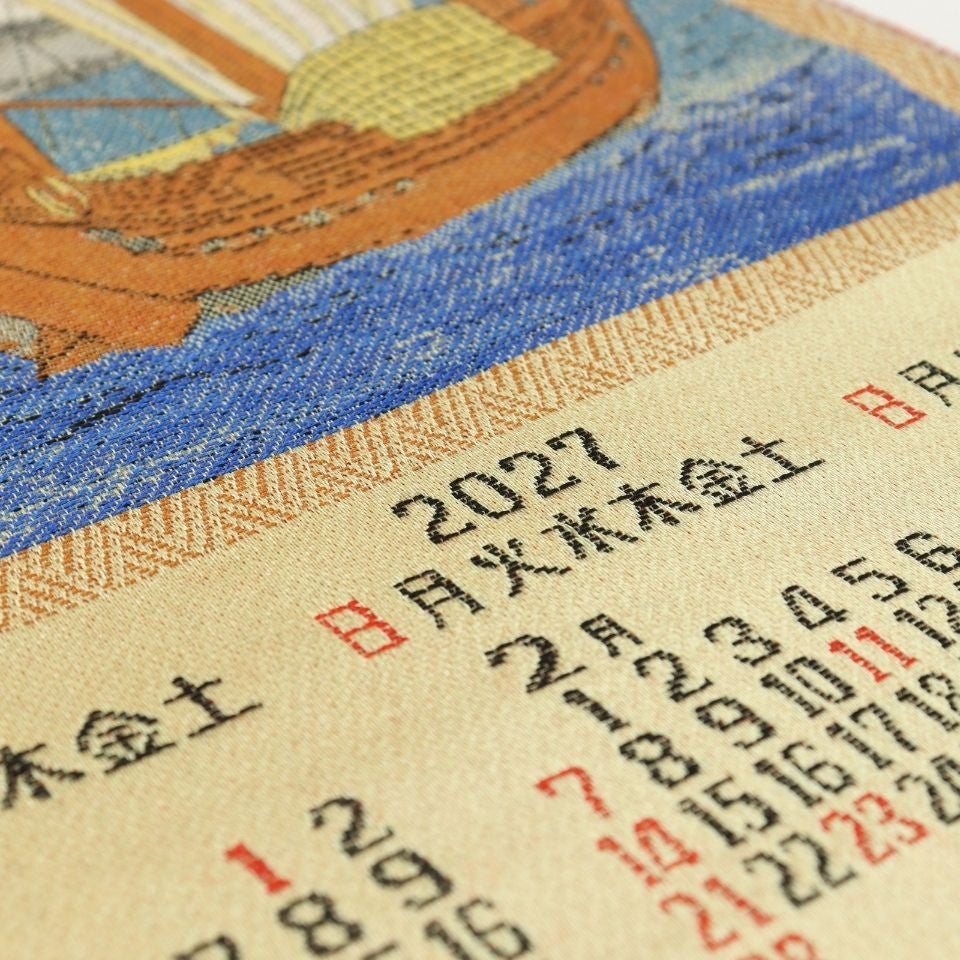 2027
木金土
日月火水木金土
日月
2月
1 2
1 2 3 4 5 6
8 9
7 8 9 10 11 12
16
14 15 16 17 18
21 22 23 24